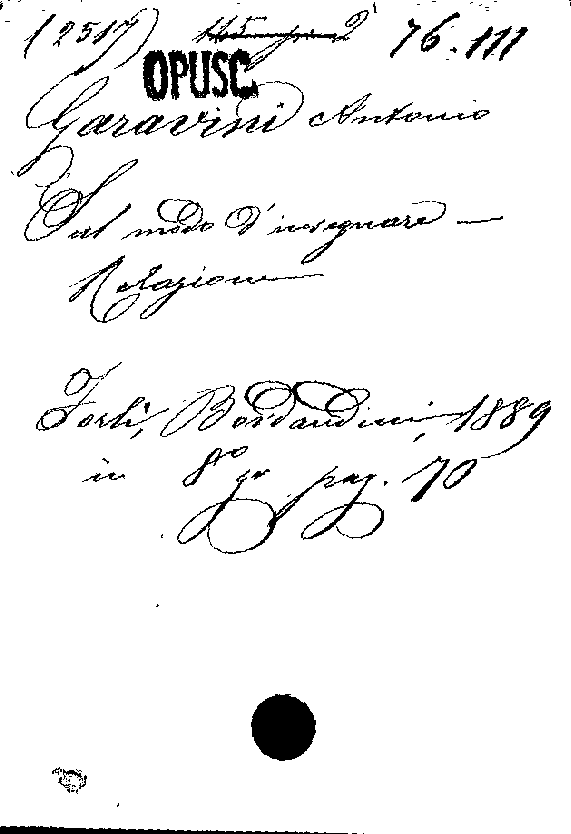 (2517) 76.111
OPUSC.
Garavini Antonio
Sul modo d'insegnare —
Relazione
Forlì, Bordandini, 1889
in 8º gr pag. 70